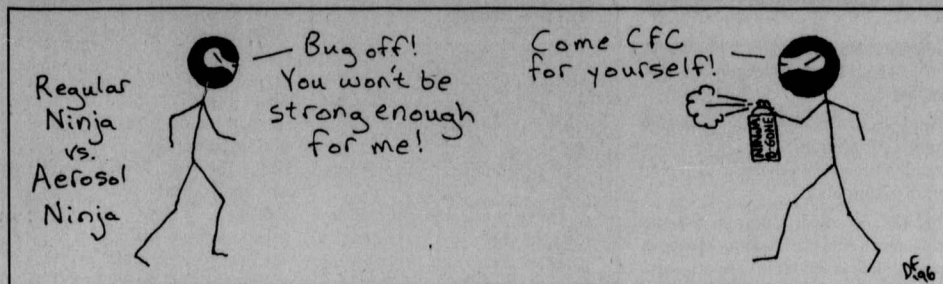 Regular
Ninja
vs.
Aerosol
Ninja
Bug off!
You won't be
strong enough
for me!
Come CFC
for yourself!
NINJA
B-GONE